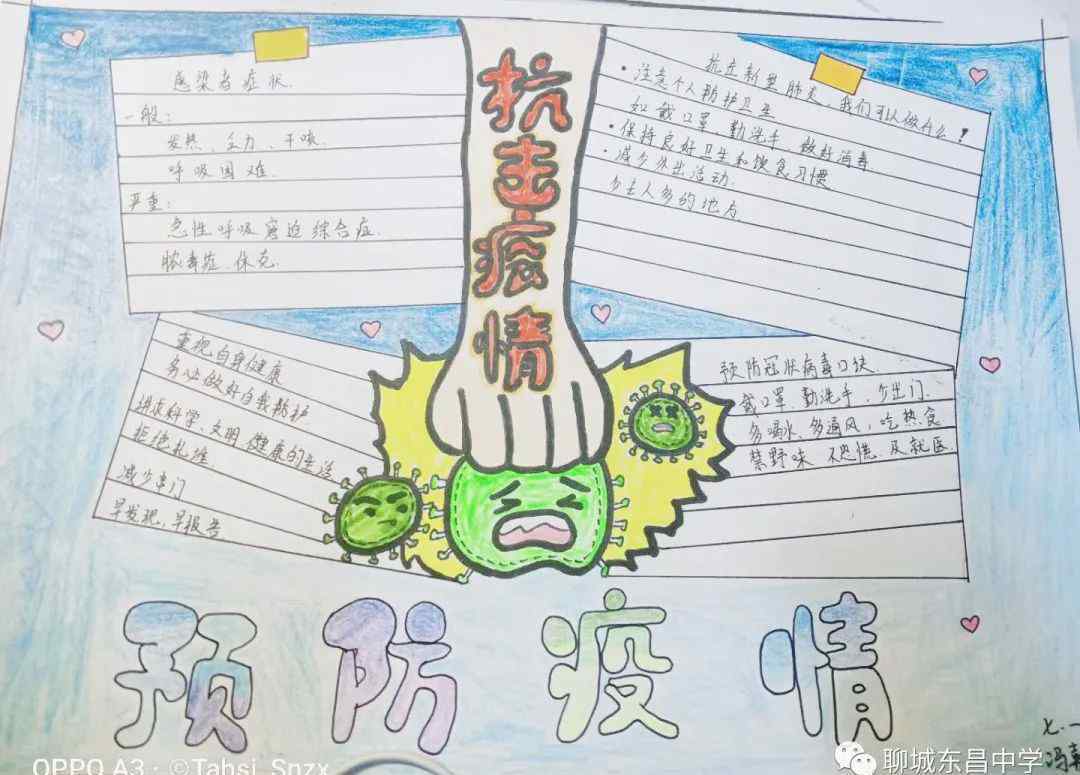 抗击疫情
感染者症状
一般：
发热、乏力、干咳
呼吸困难
严重：
急性呼吸窘迫综合症
脓毒症、休克
抗击新型肺炎，我们可以做什么？
·注意个人防护卫生
如戴口罩、勤洗手、做好消毒
·保持良好卫生和饮食习惯
·减少外出活动
少去人多的地方
重视自身健康
务必做好自我防护
讲求科学、文明、健康的生活
拒绝扎堆
减少串门
早发现，早报告
预防冠状病毒口诀
戴口罩、勤洗手，少出门
多喝水、多通风，吃热食
禁野味 不恐慌 及就医
预防疫情
七·一
冯
聊城东昌中学
OPPO A3 · ©Tahsi_Snzx